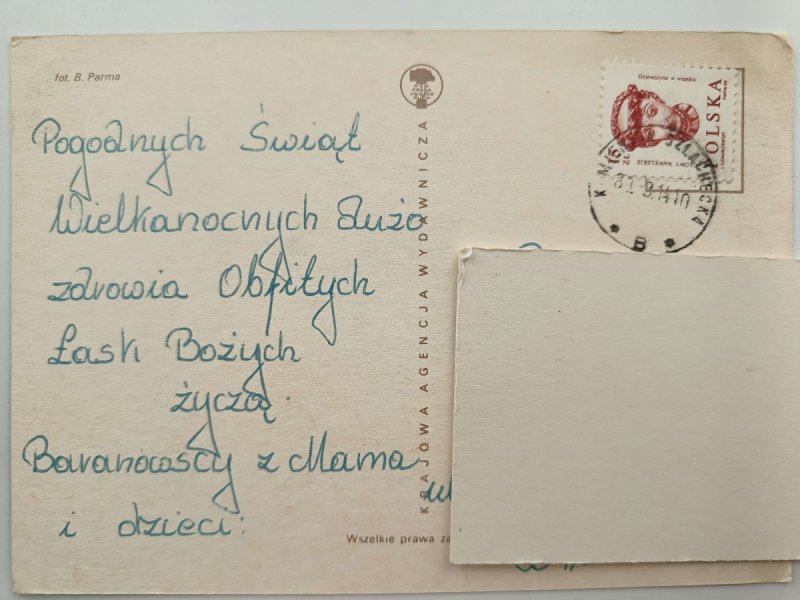 fot. B. Parma
Pogodnych Świąt
Wielkanocnych dużo
zdrowia Obfitych
Łask Bożych
życzą
Baranowscy z Mama
i dzieci:
KRAJOWA AGENCJA WYDAWNICZA
Wszelkie prawa za
Dziewczyna w wianku
POLSKA
15 ZŁ
WAWELSKIE
SZLACHECKA
B